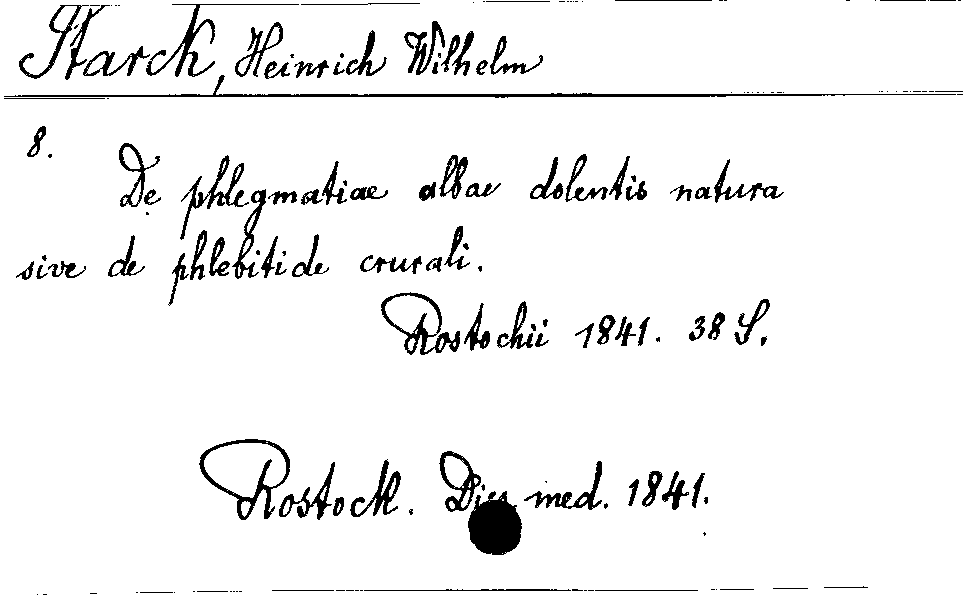 Starck, Heinrich Wilhelm
8.
De phlegmatiae albae dolentis natura
sive de phlebitide crurali.
Rostochii 1841. 38 S.
Rostock. Diss. med. 1841.